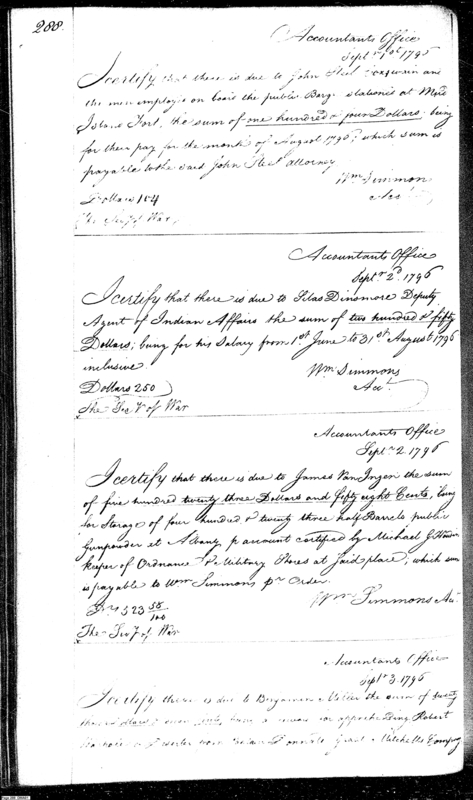 288.
Accountants Office
Septr 1st 1796
I certify that there is due to John Steel Coxswain and
the men employed on board the public Barge stationed at
Island Fort, the sum of one hundred & four Dollars; being
for their pay for the month of August 1796; which sum is
payable to the said John Steel attorney
Wm Simmons
Dollars 104
The Secy of War
Accountants Office
Septr 2d. 1796
I certify that there is due to Silas Dinsmore Deputy
Agent of Indian Affairs the sum of two hundred & fifty
Dollars; being for his Salary from 1st June to 31st August 1796
inclusive.
Wm Simmons
Acct.
Dollars 250
The Secy of War
Accountants Office
Septr 2. 1796
I certify that there is due to James Van Ingen the sum
of five hundred twenty three Dollars and fifty eight Cents, being
for Storage of four hundred & twenty three half Barrels public
Gunpowder at Albany p account certified by Michael G
keeper of Ordnance & Military Stores at said place, which sum
is payable to Wm Simmons pr Order.
Wm Simmons Act.
Drs 523 58/100
The Secy of War
Accountants Office
Septr 3. 1796
I certify there is due to Benjamin Miller the sum of twenty
three Dollars & cents being a reward for apprehending Robert
a Deserter from Mitchells Company